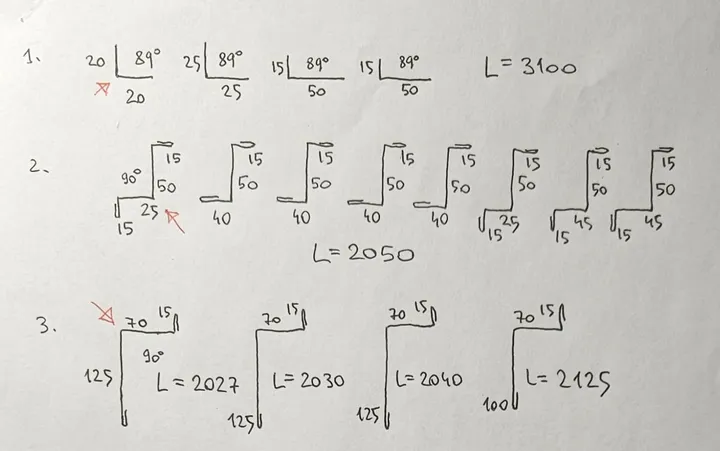 1. 20 89° 20 25 89° 25 15 89° 50 15 89° 50 L=3100
2. 90° 15 50 25 15 15 50 40 15 50 40 15 50 40 15 50 40 15 50 25 15 15 50 45 15 15 50 45 15
L=2050
3. 70 15 125 90° L=2027 70 15 125 L=2030 70 15 125 L=2040 70 15 100 L=2125